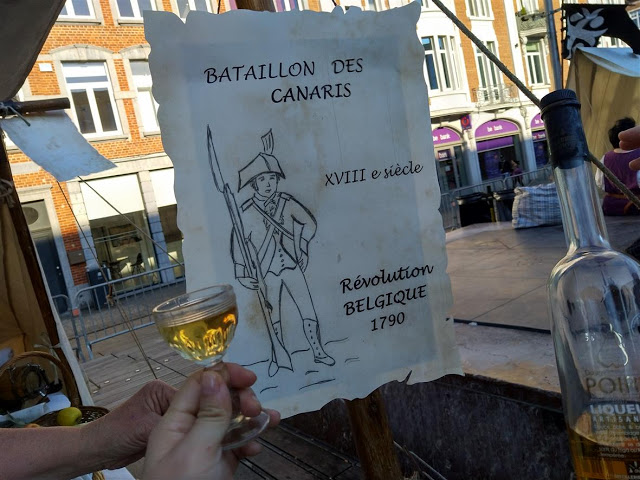 BATAILLON DES
CANARIS
XVIII e siècle
Révolution
BELGIQUE
1790
POIR
LIQUEU
ARTISAN